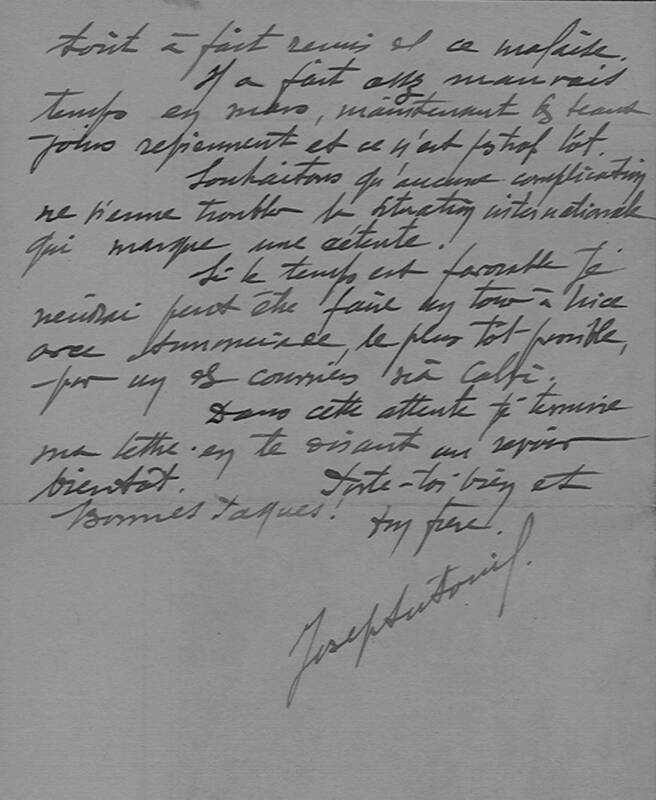 tout à fait remis de ce malaise.
Il a fait assez mauvais
temps en mars, maintenant les beaux
jours reviennent et ce n'est pas trop tôt.
Souhaitons qu'aucune complication
ne vienne troubler la situation internationale
qui marque une détente.
Si le temps est favorable je
viendrai peut être faire un tour à Nice
avec Annonciade, le plus tôt possible,
par un des courriers via Calvi.
Dans cette attente je termine
ma lettre en te disant au revoir
bientôt. Porte-toi bien et
Bonnes Pâques! ton frère.
Joseph Antoine